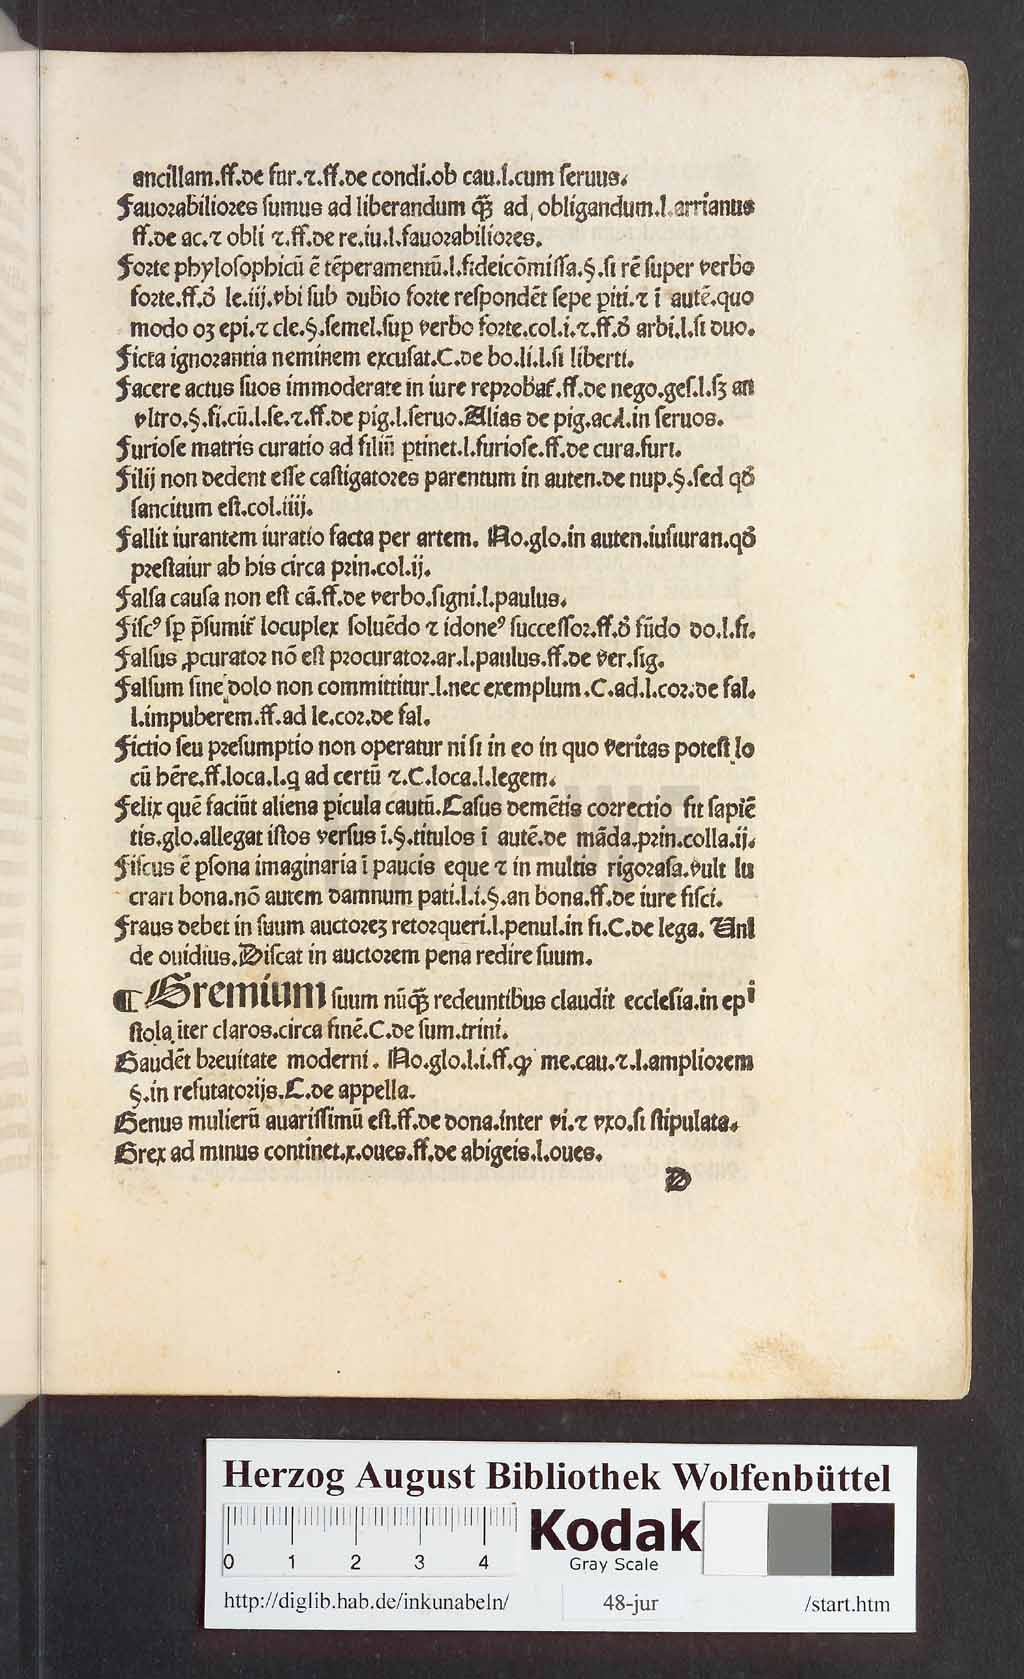 ancillam.ff.de fur.⁊.ff.de condi.ob cau.l.cum seruus.
Fauorabiliores sumus ad liberandum qꝫ ad obligandum.l.arrianus
ff.de ac.⁊ obli ⁊.ff.de re.iu.l.fauorabiliores.
Forte phylosophicū ē tēperamentū.l.fideicōmissa.§.si rē super verbo
forte.ff.đ le.iij.vbi sub dubio forte respondēt sepe ꝑiti.⁊ ī autē.quo
modo oꝫ epi.⁊ cle.§.semel.suꝑ verbo forte.col.i.⁊.ff.đ arbi.l.si duo.
Ficta ignorantia neminem excusat.C.de bo.li.l.si liberti.
Facere actus suos immoderate in iure reprobat̄.ff.de nego.ges.l.sꝫ an
vltro.§.fi.cū.l.se.⁊.ff.de pig.l.seruo.Alias de pig.ac.l.in seruos.
Furiose matris curatio ad filiū ꝑtinet.l.furiose.ff.de cura.furi.
Filij non dedent esse castigatores parentum in auten.de nup.§.sed qđ
sancitum est.col.iiij.
Fallit iurantem iuratio facta per artem. No.glo.in auten.iusiuran.qđ
prestaiur ab his circa prin.col.ij.
Falsa causa non est cā.ff.de verbo.signi.l.paulus.
Fiscꝰ sꝑ p̄sumit̄ locuplex soluēdo ⁊ idoneꝰ successor.ff.đ fūdo do.l.fi.
Falsus ꝓcurator nō est procurator.ar.l.paulus.ff.de ver.sig.
Falsum sine dolo non committitur.l.nec exemplum.C.ad.l.cor.de fal.
l.impuberem.ff.ad le.cor.de fal.
Fictio seu presumptio non operatur nisi in eo in quo veritas potest lo
cū hēre.ff.loca.l.q ad certū ⁊.C.loca.l.legem.
Felix quē faciūt aliena ꝑicula cautū.Casus demētis correctio fit sapiē
tis.glo.allegat istos versus ī.§.titulos ī autē.de māda.prin.colla.ij.
Fiscus ē ꝑsona imaginaria ī paucis eque ⁊ in multis rigorasa.vult lu
crari bona.nō autem damnum pati.l.i.§.an bona.ff.de iure fisci.
Fraus debet in suum auctoreꝫ retorqueri.l.penul.in fi.C.de lega. Vnl
de ouidius.Discat in auctorem pena redire suum.
¶ Gremium suum nūqꝫ redeuntibus claudit ecclesia.in epi
stola iter claros.circa finē.C.de sum.trini.
Gaudēt breuitate moderni. No.glo.l.i.ff.ꝙ me.cau.⁊.l.ampliorem
§.in refutatorijs.C.de appella.
Genus mulierū auarissimū est.ff.de dona.inter vi.⁊ vxo.si stipulata.
Grex ad minus continet.x.oues.ff.de abigeis.l.oues.
D
Herzog August Bibliothek Wolfenbüttel
0 1 2 3 4
Kodak
Gray Scale
http://diglib.hab.de/inkunabeln/ 48-jur /start.htm